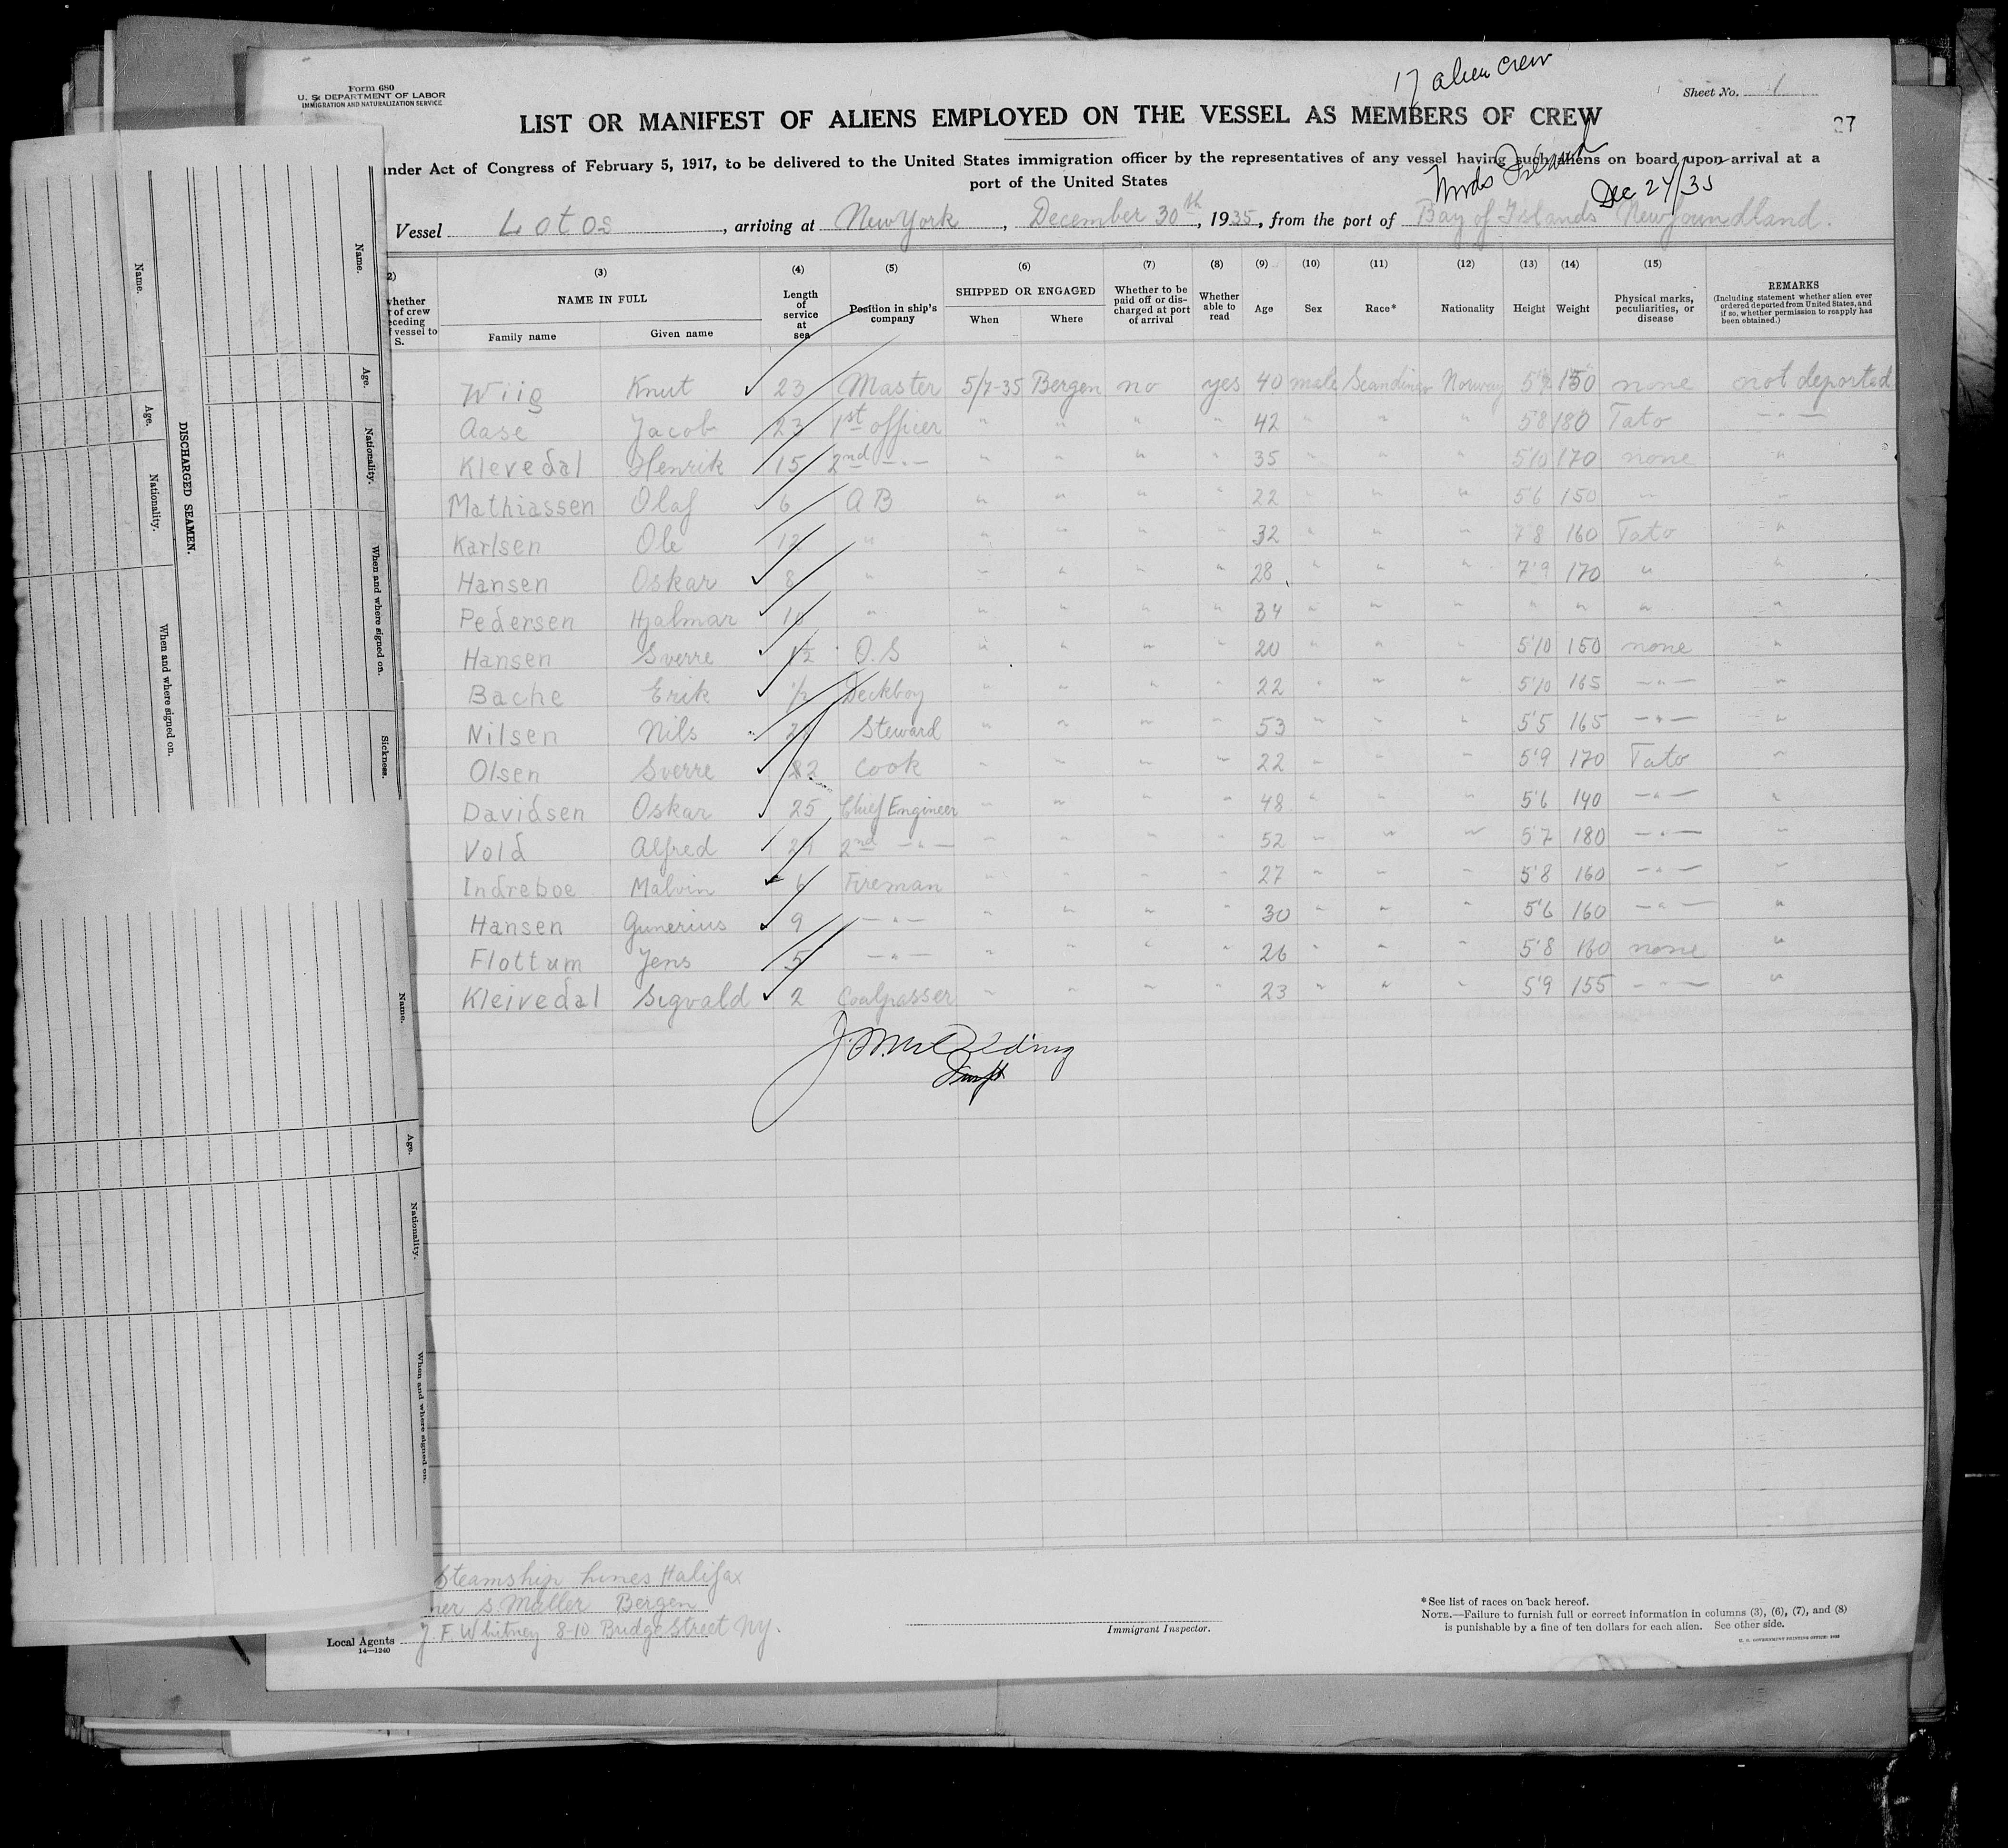 17 alien crew
Form 680
U. S. DEPARTMENT OF LABOR
IMMIGRATION AND NATURALIZATION SERVICE
Sheet No. 1
LIST OR MANIFEST OF ALIENS EMPLOYED ON THE VESSEL AS MEMBERS OF CREW
27
under Act of Congress of February 5, 1917, to be delivered to the United States immigration officer by the representatives of any vessel having such aliens on board upon arrival at a
port of the United States
Dec 24/35
Vessel Lotos, arriving at New York, December 30th, 1935, from the port of Bay of Islands Newfoundland.
(3) (4) (5) (6) (7) (8) (9) (10) (11) (12) (13) (14) (15)
NAME IN FULL Family name Given name
Length of service at sea
Position in ship's company
SHIPPED OR ENGAGED When Where
Whether to be paid off or discharged at port of arrival
Whether able to read
Age Sex Race* Nationality Height Weight
Physical marks, peculiarities, or disease
REMARKS (Including statement whether alien ever ordered deported from United States, and if so, whether permission to reapply has been obtained.)
Wiig Knut 23 Master 5/7-35 Bergen no yes 40 male Scandinav Norway 5'7 150 none not deported
Aase Jacob 23 1st officer " " " " 42 " " " 58 180 Tato -"-
Klevedal Henrik 15 2nd -"- " " " " 35 " " " 5'10 170 none "
Mathiassen Olaf 6 AB " " " " 22 " " " 5'6 150 " "
Karlsen Ole 12 " " " " " 32 " " " 7'8 160 Tato "
Hansen Oskar 8 " " " " " 28 " " " 7'9 170 " "
Pedersen Hjalmar " " " " " 34 " " " " " " "
Hansen Sverre 1½ O.S " " " " 20 " " " 5'10 150 none "
Bache Erik ½ Deckboy " " " " 22 " " " 5'10 165 -"- "
Nilsen Nils Steward " " " " 53 " " " 5'5 165 -"- "
Olsen Sverre 2 Cook " " " " 22 " " " 5'9 170 Tato "
Davidsen Oskar 25 Chief Engineer " " " " 48 " " " 5'6 140 -"- "
Vold Alfred 2nd -"- " " " " 52 " " " 5'7 180 -"- "
Indreboe Malvin 6 Fireman " " " " 27 " " " 5'8 160 -"- "
Hansen Gunerius 9 -"- " " " " 30 " " " 5'6 160 -"- "
Flottum Jens 5 -"- " " " " 26 " " " 5'8 160 none "
Kleivedal Sigvald 2 Coalpasser " " " " 23 " " " 5'9 155 -"- "
Steamship Lines Halifax
ner S. Müller Bergen
Local Agents J. F. Whitney 8-10 Bridge Street NY.
14—1240
Immigrant Inspector.
* See list of races on back hereof.
NOTE.—Failure to furnish full or correct information in columns (3), (6), (7), and (8)
is punishable by a fine of ten dollars for each alien. See other side.
DISCHARGED SEAMEN.
Name. Age. Nationality. When and where signed on.
Name. Age. Nationality. When and where signed on. Sickness.
Name. Age. Nationality. When and where signed on.